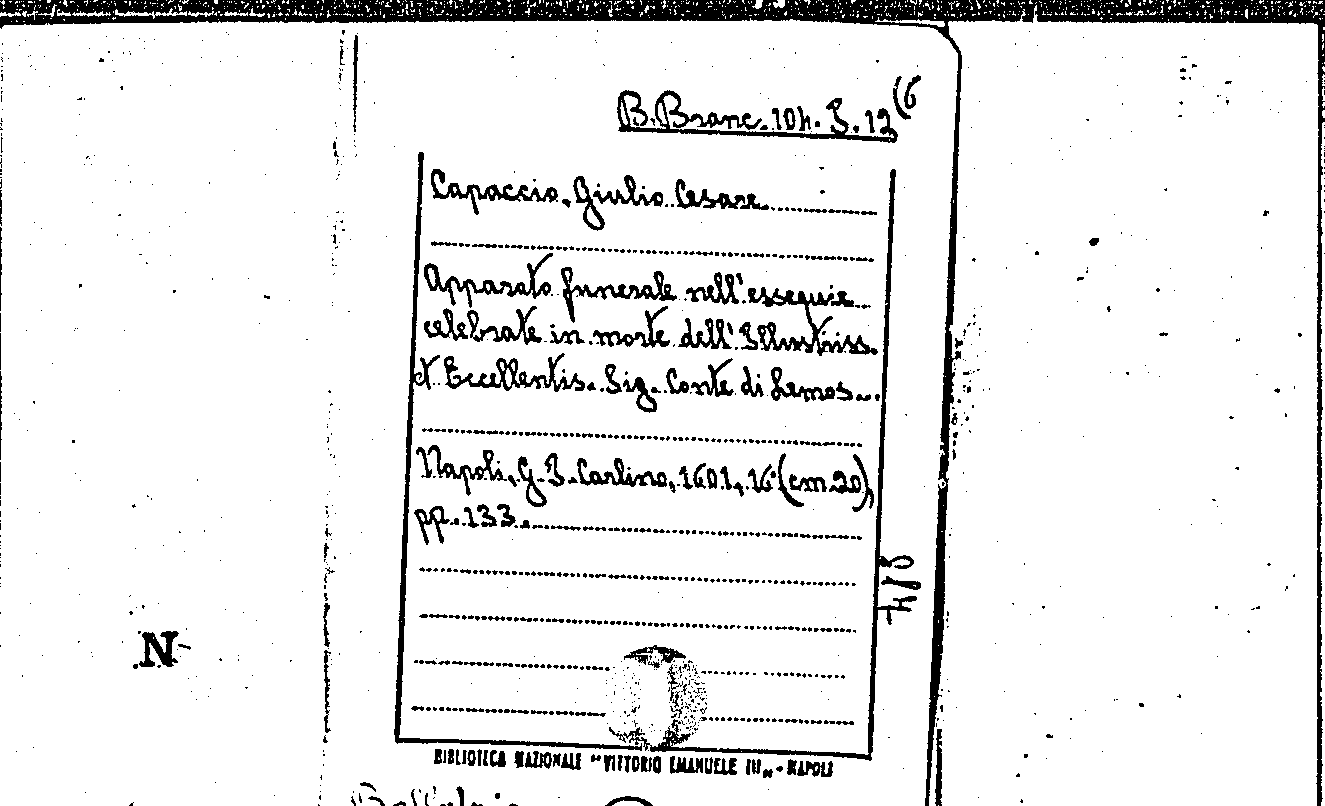 B. Branc. 104. I. 12 (6
Capaccio, Giulio Cesare
Apparato funerale nell'essequie
celebrate in morte dell'Illustriss.
et Eccellentis. Sig. Conte di Lemos...
Napoli, G. I. Carlino, 1601, 16° (cm. 20),
pp. 133.
N
BIBLIOTECA NAZIONALE "VITTORIO EMANUELE III" - NAPOLI